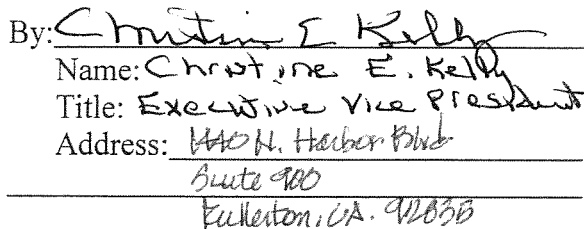 By: Christine E Kelly
Name: Christine E. Kelly
Title: Executive Vice President
Address: 1440 N. Harbor Blvd
Suite 900
Fullerton, CA. 92835